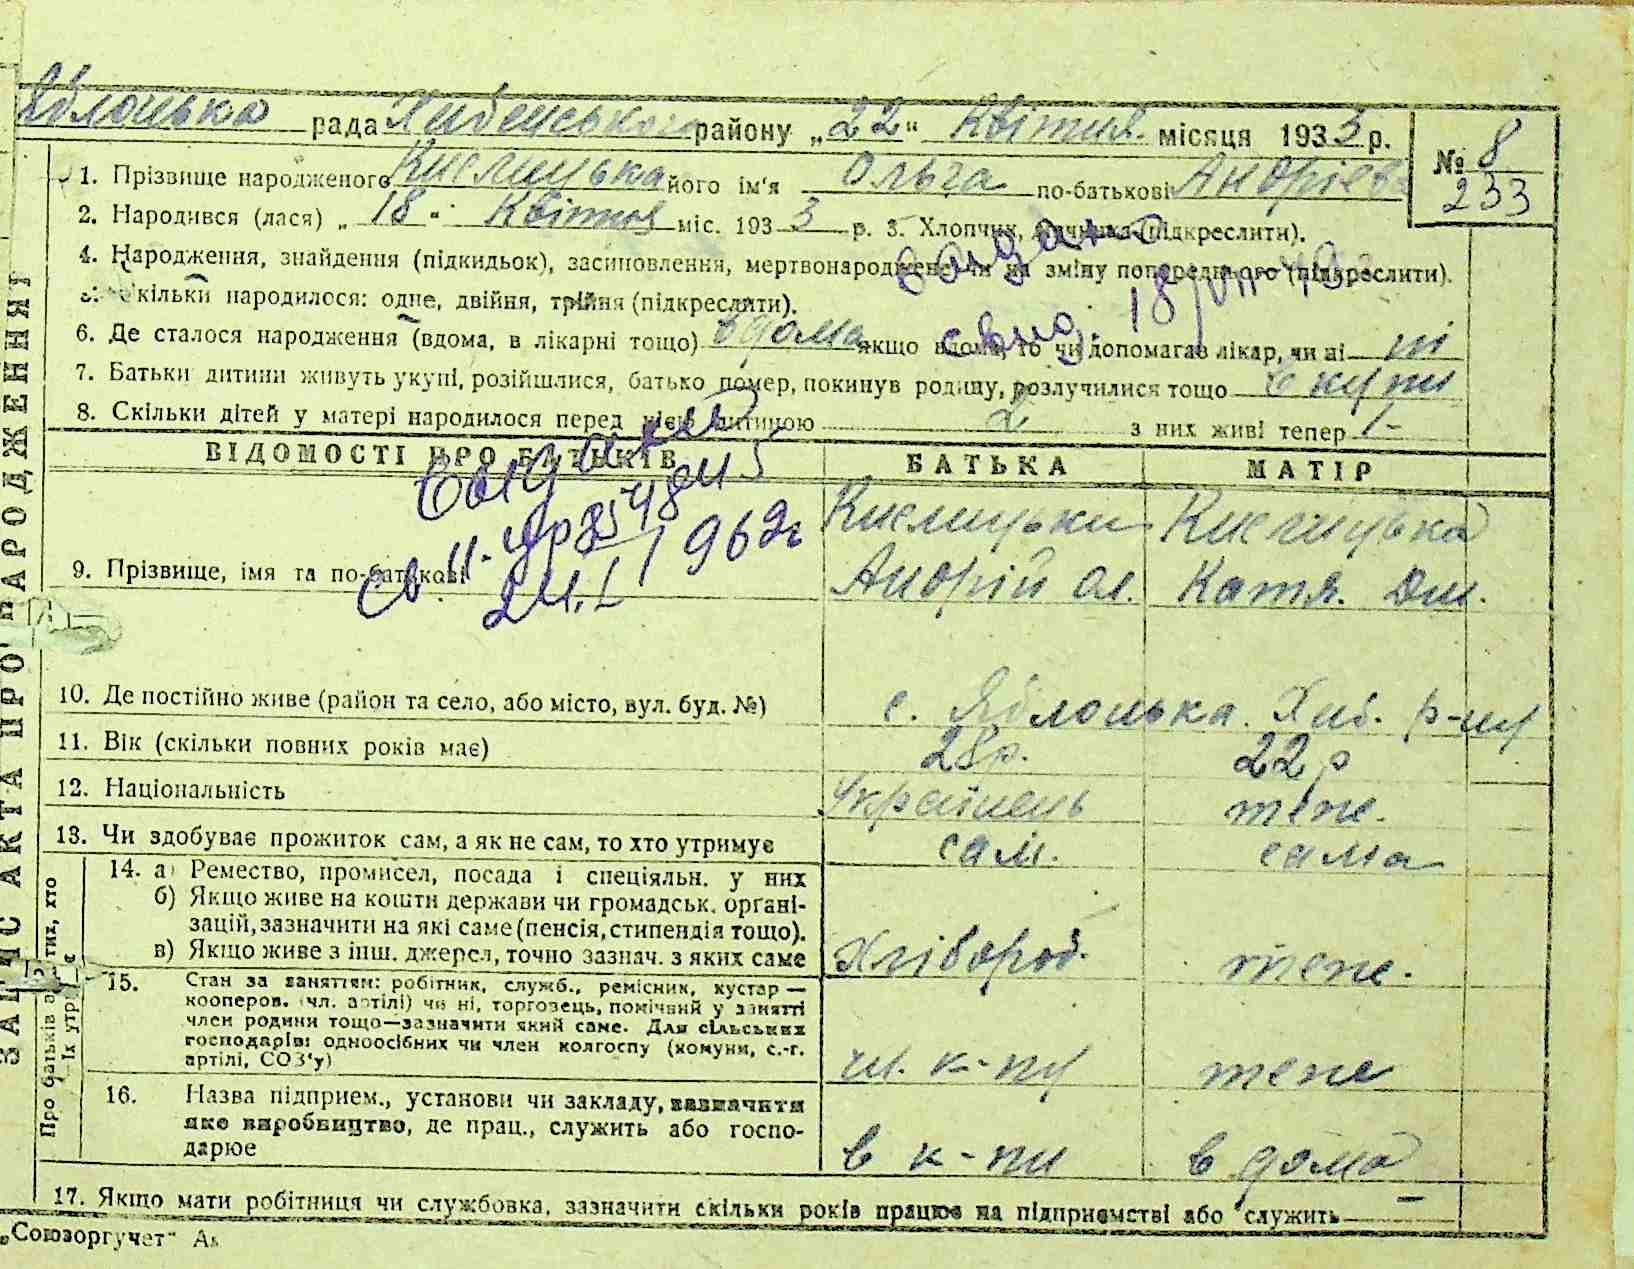 Яблонька рада Хабенського району „22“ Квітня місяця 1933 р.
№ 8
233
1. Прізвище народженого Кислицька його ім'я Ольга по-батькові Андріев
2. Народився (лася) „18“ Квітня міс. 1933 р. 3. Хлопчик, дівчинка (підкреслити).
4. Народження, знайдення (підкидьок), засиновлення, мертвонароджене чи на зміну попереднього (підкреслити).
Скільки народилося: одне, двійня, трійня (підкреслити).
6. Де сталося народження (вдома, в лікарні тощо) вдома якщо вдома, то чи допомагав лікар, чи ні ні
7. Батьки дитини живуть укупі, розійшлися, батько помер, покинув родину, розлучилися тощо вкупи
8. Скільки дітей у матері народилося перед цією дитиною 2 з них живі тепер 1-
Выдано
свид. 18/VII
ВІДОМОСТІ ПРО БАТЬКІВ БАТЬКА МАТІР
Выдано
св II-
24.I 1962г
9. Прізвище, імя та по-батькові
Кислицьки Андрій Ол.
Кислицька Катя. Дм.
10. Де постійно живе (район та село, або місто, вул. буд. №) с. Яблонька. Хаб. р-ну
11. Вік (скільки повних років має) 28р. 22р
12. Національність Українець теж.
13. Чи здобуває прожиток сам, а як не сам, то хто утримує сам. сама
14. а) Ремество, промисел, посада і спеціяльн. у них
б) Якщо живе на кошти держави чи громадськ. органі-
зацій, зазначити на які саме (пенсія, стипендія тощо).
в) Якщо живе з інш. джерел, точно зазнач. з яких саме
Хлібороб. теж.
15. Стан за заняттям: робітник, служб., ремісник, кустар —
кооперов. (чл. артілі) чи ні, торговець, помічний у занятті
член родини тощо—зазначити який саме. Для сільських
господарів: одноосібних чи член колгоспу (комуни, с.-г.
артілі, СОЗ'у)
чл. к-пу теж
16. Назва підприєм., установи чи закладу, зазначити
яке виробництво, де прац., служить або госпо-
дарює
в к-пи в дома
17. Якщо мати робітниця чи службовка, зазначити скільки років працює на підприємстві або служить —
„Союзоргучет“
ЗАПИС АКТА ПРО НАРОДЖЕННЯ
Про батьків а тих, хто
їх утр